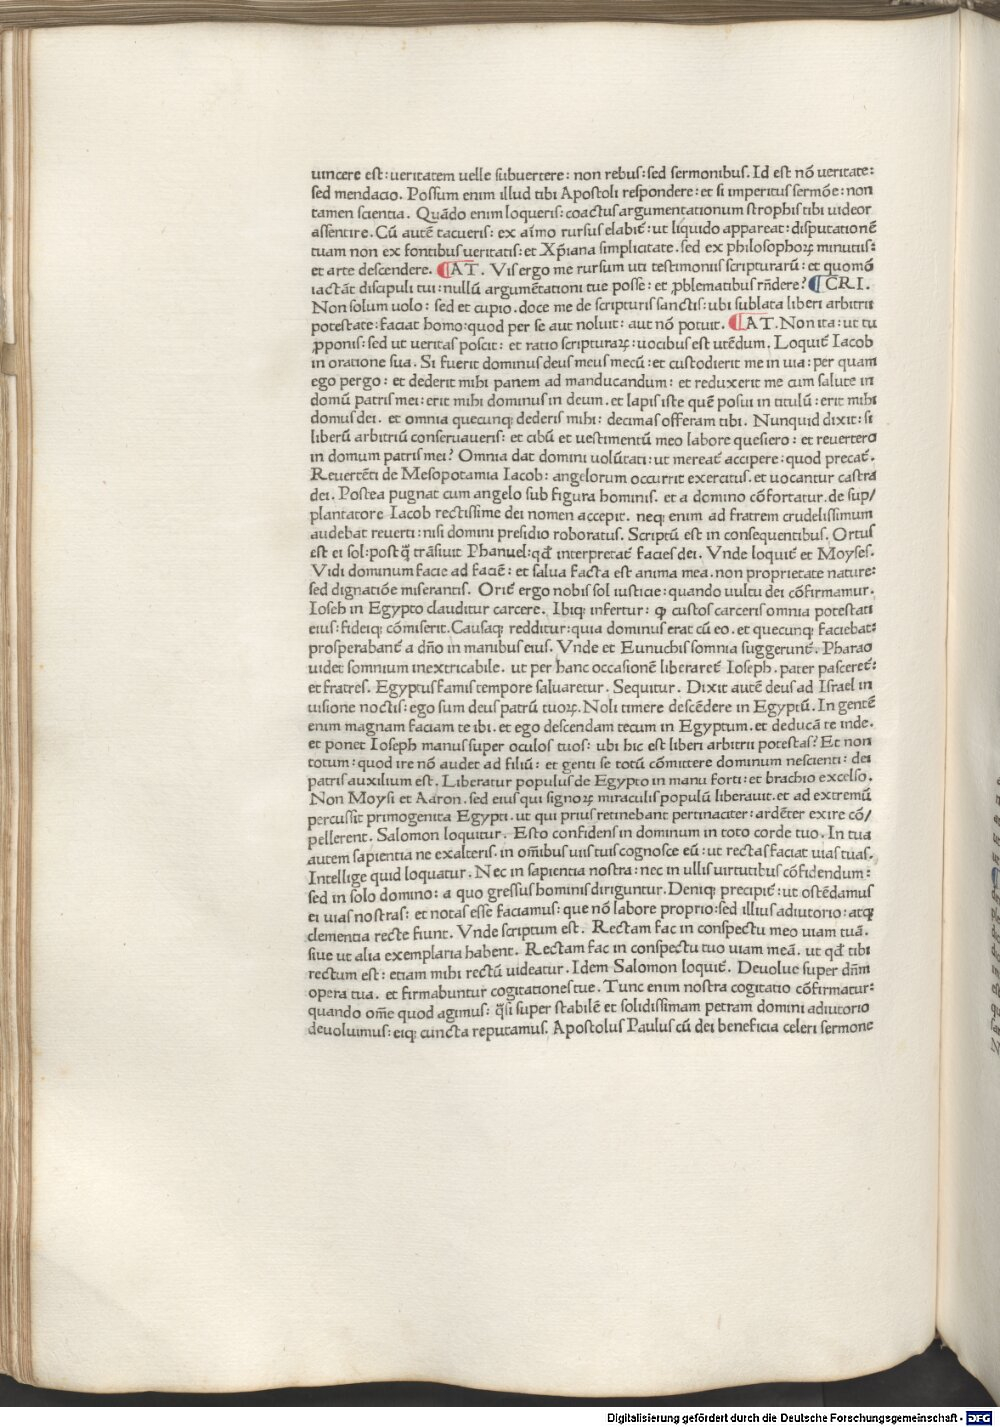 uincere est: ueritatem uelle subuertere: non rebus: sed sermonibus. Id est nõ ueritate:
sed mendacio. Possum enim illud tibi Apostoli respondere: et si imperitus sermõe: non
tamen scientia. Quãdo enim loqueris: coactus argumentationum strophis tibi uideor
assentire. Cũ autẽ tacueris: ex aĩmo rursus elabit᷑: ut liquido appareat: disputationẽ
tuam non ex fontibus ueritatis: et Xp̃iana simplicitate. sed ex philosophoꝝ minutiis:
et arte descendere. ¶AT. Vis ergo me rursum uti testimoniis scripturarũ: et quomõ
iactãt discipuli tui: nullũ argumẽtationi tue posse: et ꝓblematibus rñdere? ¶CRI.
Non solum uolo: sed et cupio. doce me de scripturis sanctis: ubi sublata liberi arbitrii
potestate: faciat homo: quod per se aut noluit: aut nõ potuit. ¶AT. Non ita: ut tu
ꝓponis: sed ut ueritas poscit: et ratio scripturaꝝ: uocibus est utẽdum. Loquit᷑ Iacob
in oratione sua. Si fuerit dominus deus meus mecũ: et custodierit me in uia: per quam
ego pergo: et dederit mihi panem ad manducandum: et reduxerit me cum salute in
domũ patris mei: erit mihi dominus in deum. et lapis iste quẽ posui in titulũ: erit mihi
domus dei. et omnia quecunqꝫ dederis mihi: decimas offeram tibi. Nunquid dixit: si
liberũ arbitriũ conseruaueris: et cibũ et uestimentũ meo labore quesiero: et reuertero
in domum patris mei? Omnia dat domini uolũtati: ut mereat᷑ accipere: quod precat᷑.
Reuertẽti de Mesopotamia Iacob: angelorum occurrit exercitus. et uocantur castra
dei. Postea pugnat cum angelo sub figura hominis. et a domino cõfortatur. de sup/
plantatore Iacob rectissime dei nomen accepit. neqꝫ enim ad fratrem crudelissimum
audebat reuerti: nisi domini presidio roboratus. Scriptũ est in consequentibus. Ortus
est ei sol: postq̃ trãsiuit Phanuel: qđ interpretat᷑ facies dei. Vnde loquit᷑ et Moyses.
Vidi dominum facie ad faciẽ: et salua facta est anima mea. non proprietate nature:
sed dignatiõe miserantis. Orit᷑ ergo nobis sol iusticie: quando uultu dei cõfirmamur.
Ioseh in Egypto clauditur carcere. Ibiqꝫ infertur: ꝙ custos carceris omnia potestati
eius: fideiqꝫ cõmiserit. Causaqꝫ redditur: quia dominus erat cũ eo. et quecunqꝫ faciebat:
prosperabant᷑ a dño in manibus eius. Vnde et Eunuchis somnia suggerunt᷑. Pharao
uidet somnium inextricabile. ut per hanc occasionẽ liberaret᷑ Ioseph. pater pasceret᷑:
et fratres. Egyptus famis tempore saluaretur. Sequitur. Dixit autẽ deus ad Israel in
uisione noctis: ego sum deus patrũ tuoꝝ. Noli timere descẽdere in Egyptũ. In gentẽ
enim magnam faciam te ibi. et ego descendam tecum in Egyptum. et deducã te inde.
et ponet Ioseph manus super oculos tuos: ubi hic est liberi arbitrii potestas? Et non
totum: quod ire nõ audet ad filiũ: et genti se totũ cõmittere dominum nescienti: dei
patris auxilium est. Liberatur populus de Egypto in manu forti: et brachio excelso.
Non Moysi et Aaron. sed eius qui signoꝝ miraculis populũ liberauit. et ad extremũ
percussit primogenita Egypti. ut qui prius retinebant pertinaciter: ardẽter exire cõ/
pellerent. Salomon loquitur. Esto confidens in dominum in toto corde tuo. In tua
autem sapientia ne exalteris. in omĩbus uiis tuis cognosce eũ: ut rectas faciat uias tuas.
Intellige quid loquatur. Nec in sapientia nostra: nec in ullis uirtutibus cõfidendum:
sed in solo domino: a quo gressus hominis diriguntur. Deniqꝫ precipit᷑: ut ostẽdamus
ei uias nostras: et notas esse faciamus: que nõ labore proprio: sed illius adiutorio: atqꝫ
clementia recte fiunt. Vnde scriptum est. Rectam fac in conspectu meo uiam tuã.
siue ut alia exemplaria habent. Rectam fac in conspectu tuo uiam meã. ut qđ tibi
rectum est: etiam mihi rectũ uideatur. Idem Salomon loquit᷑. Deuolue super dñm
opera tua. et firmabuntur cogitationes tue. Tunc enim nostra cogitatio cõfirmatur:
quando om̃e quod agimus: q̃si super stabilẽ et solidissimam petram domini adiutorio
deuoluimus: eiqꝫ cuncta reputamus. Apostolus Paulus cũ dei beneficia celeri sermone
Digitalisierung gefördert durch die Deutsche Forschungsgemeinschaft - DFG